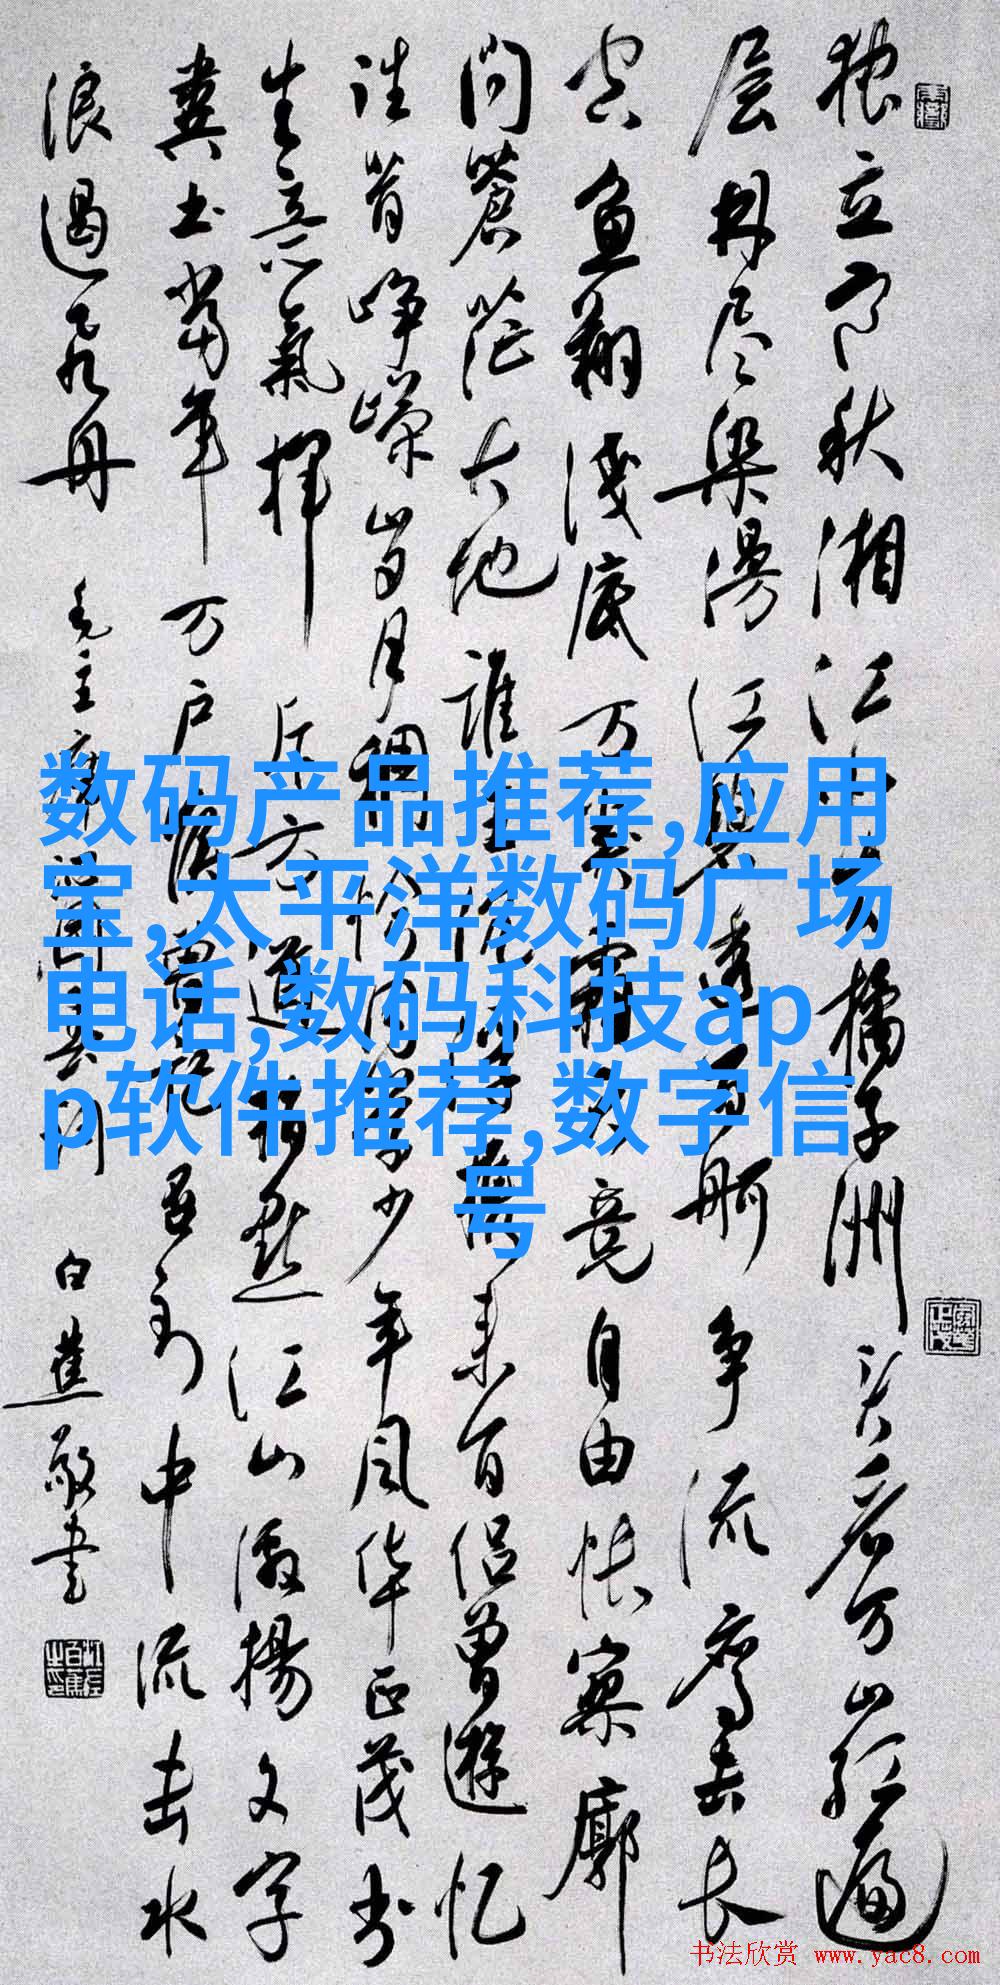 独立寒秋湘江橘子洲头看万山红遍
层林尽染漫江碧透百舸争流鹰击长
空鱼翔淺底万类霜天竞自由怅寥廓
问蒼茫大地誰主携来百侣曾遊忆
往昔峥嵘岁月稠恰同学少年风华正茂书
生意氣揮斥方遒指点江山激揚文字
粪土当年万户侯曾记否到中流击水
浪遏飞舟 毛主席 白蕉敬書
数码产品推荐,应用
宝,太平洋数码广场
电话,数码科技ap
p软件推荐,数字信
号
书法欣赏 www.yac8.com